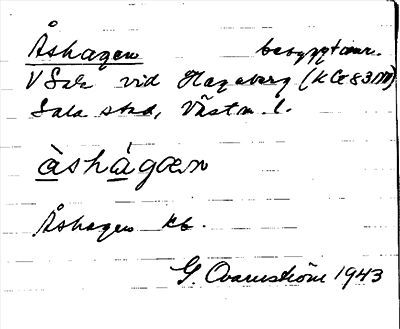 Åshagen bebyggt omr.
V Sala vid Hagaberg (KG83M)
Sala stad, Västm. l.
àshágæn
Åshagen kb.
G. Ovarnström 1943